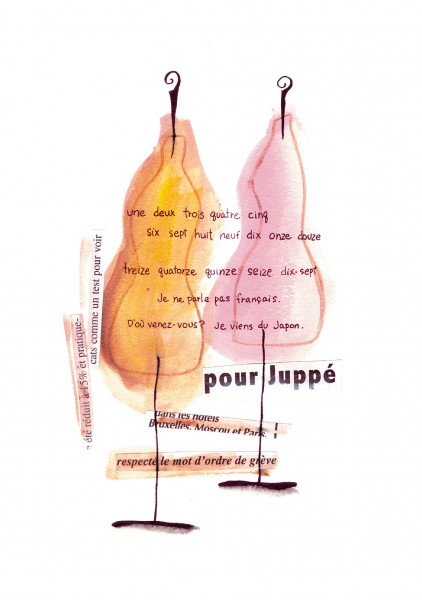 une deux trois quatre cinq
six sept huit neuf dix onze douze
treize quatorze quinze seize dix-sept
Je ne parle pas français.
D'où venez-vous? Je viens du Japon.
cats comme un test pour voir
été réduit à 15% et pratique-
pour Juppé
dans les hôtels
Bruxelles, Moscou et Paris.
respecté le mot d'ordre de grève